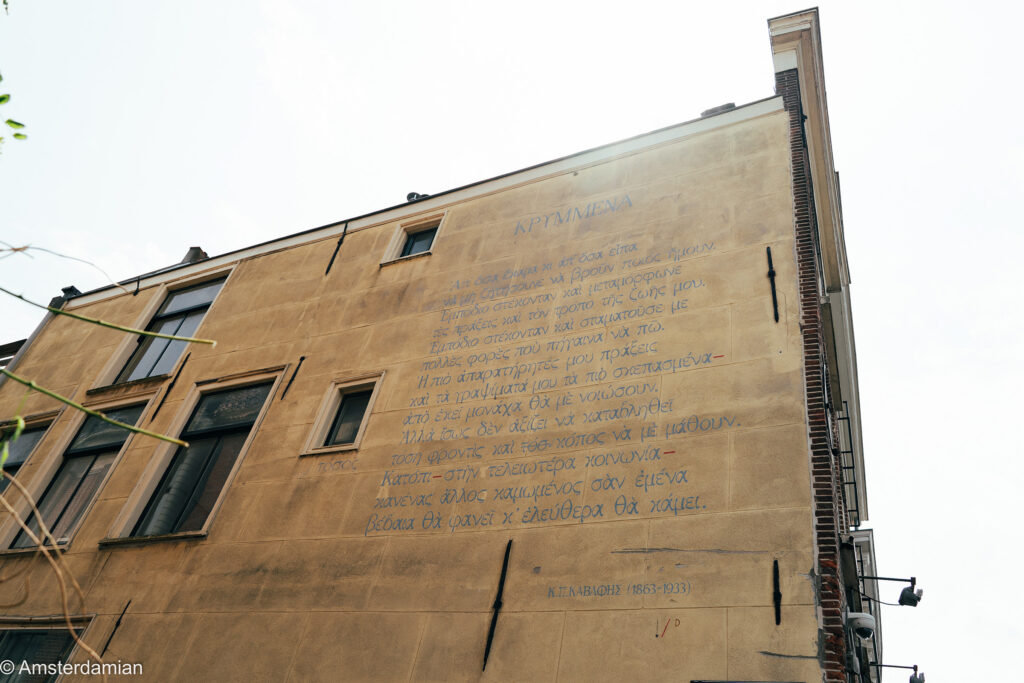 ΚΡΥΜΜΕΝΑ
Ἀπ' ὅσα ἔκαμα κι ἀπ' ὅσα εἶπα
νὰ μὴ ζητήσουνε νὰ βροῦν ποιὸς ἤμουν.
Ἐμπόδιο στέκονταν καὶ μεταμόρφωνε
τὲς πράξεις καὶ τὸν τρόπο τῆς ζωῆς μου.
Ἐμπόδιο στέκονταν καὶ σταματοῦσε με
πολλὲς φορὲς ποὺ πήγαινα νὰ πῶ.
Ἡ πιὸ ἀπαρατήρητές μου πράξεις
καὶ τὰ γραψίματά μου τὰ πιὸ σκεπασμένα—
ἀπὸ ἐκεῖ μονάχα θὰ μὲ νοιώσουν.
Ἀλλὰ ἴσως δὲν ἀξίζει νὰ καταβληθεῖ
τόση φροντὶς καὶ τόσος κόπος νὰ μὲ μάθουν.
τόσος
Κατόπι—στὴν τελειωτέρα κοινωνία—
κανένας ἄλλος καμωμένος σὰν ἐμένα
βέβαια θὰ φανεῖ κ' ἐλεύθερα θὰ κάμει.
Κ.Π. ΚΑΒΑΦΗΣ (1863-1933)
© Amsterdamian